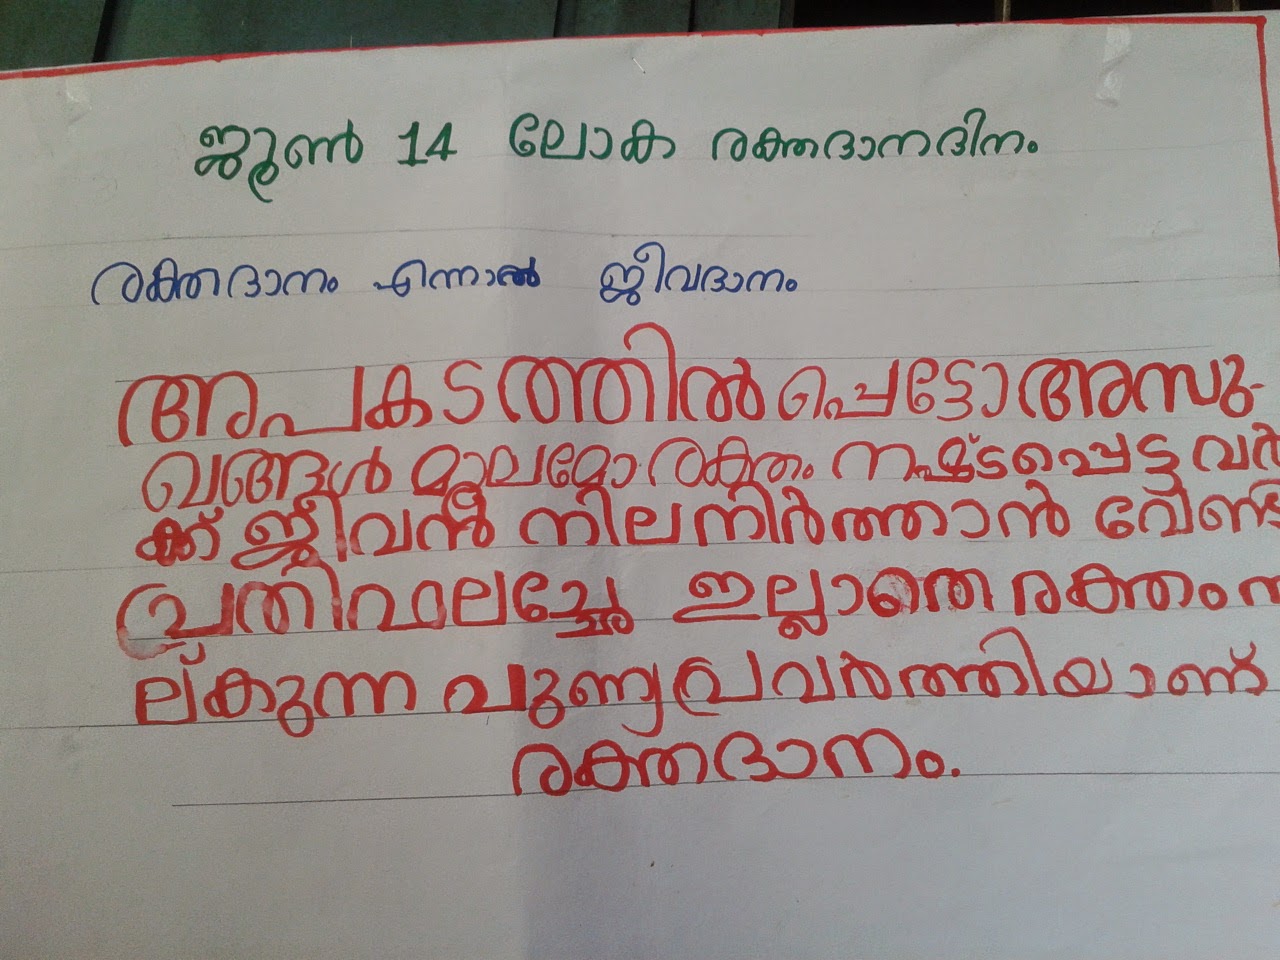 ജൂൺ 14 ലോക രക്തദാനദിനം
രക്തദാനം എന്നാൽ ജീവദാനം
അപകടത്തിൽ പെട്ടോ അസു-
ഖങ്ങൾ മൂലമോ രക്തം നഷ്ടപ്പെട്ടവർ
ക്ക് ജീവൻ നിലനിർത്താൻ വേണ്ടി
പ്രതിഫലേച്ഛ ഇല്ലാതെ രക്തം ന
ല്കുന്ന പുണ്യപ്രവർത്തിയാണ്
രക്തദാനം.